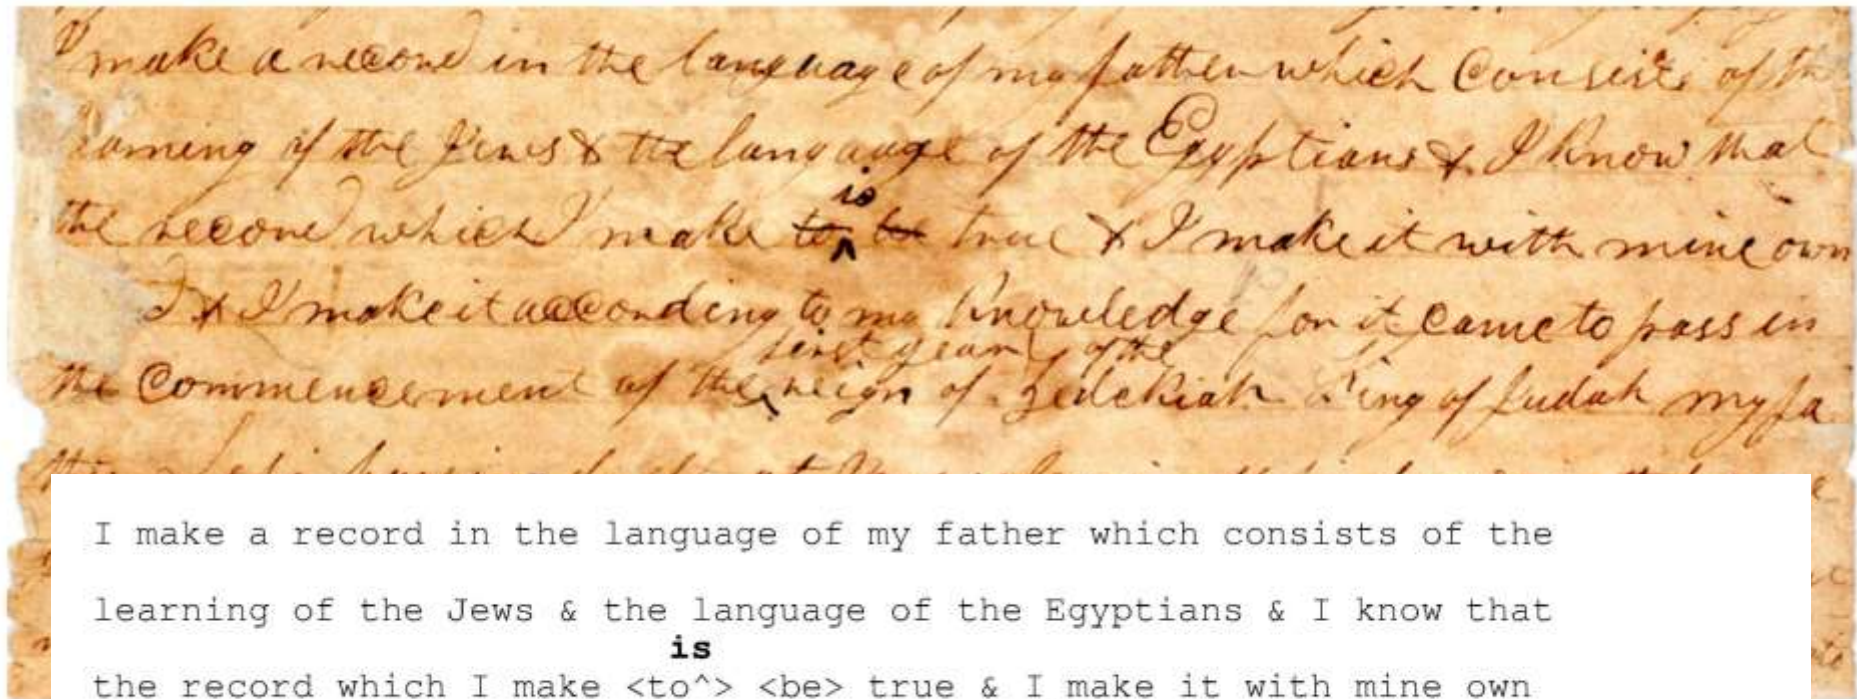 I make a record in the language of my father which consists of th
earning of the Jews & the language of the Egyptians & I know that
is
the record which I make to ^ be true & I make it with mine own
d & I make it according to my knowledge for it came to pass in
first year of the
the commencement of the ^ reign of Zedekiah King of Judah my fa
I make a record in the language of my father which consists of the
learning of the Jews & the language of the Egyptians & I know that
is
the record which I make <to^> <be> true & I make it with mine own